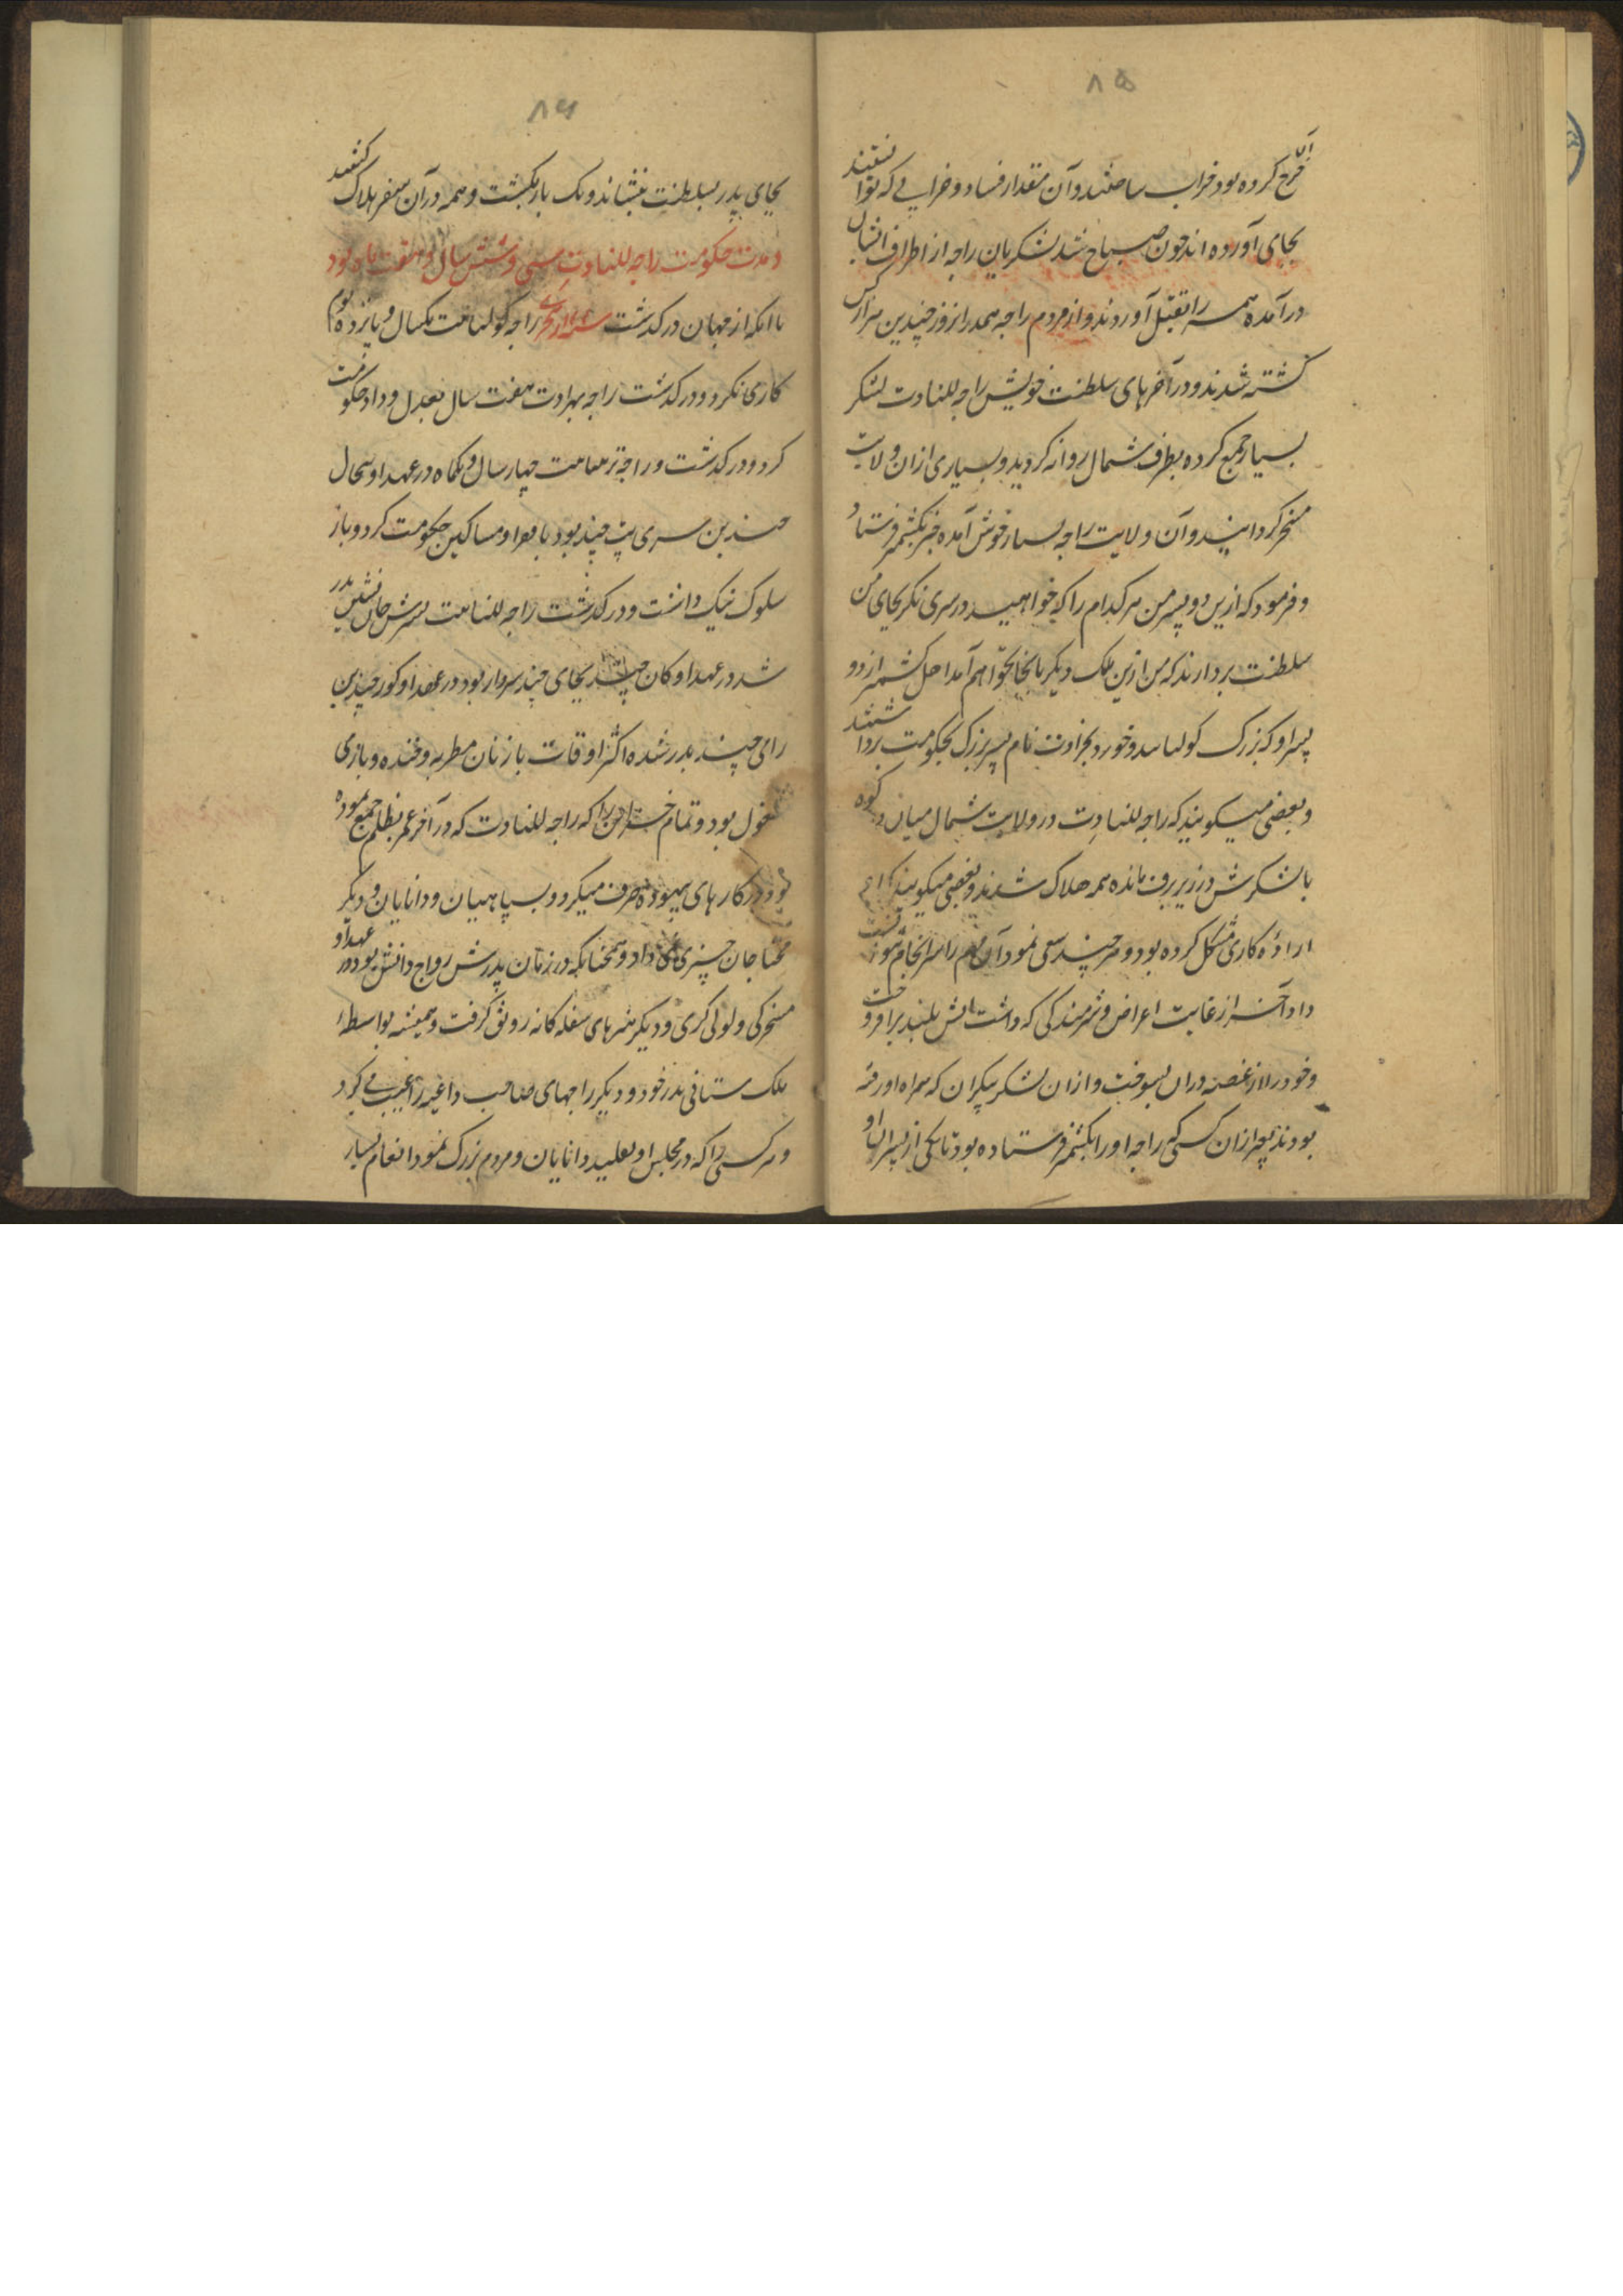 ۸۵
خرج کرده بود خراب ساختند و آن مقدار فساد و خرابی که توانستند
بجای آورده اند چون صباح شد لشکریان راجه از اطراف ایشان
درآمده همه را بقتل آوردند و از مردم راجه همدران روز چندین هزار کس
کشته شدند و در آخرهای سلطنت خویش راجه للتادت لشکر
بسیار جمع کرده بطرف شمال روانه گردید و بسیاری از آن ولایت
مسخر گردانید و آن ولایت راجه بسیار خوش آمده خبر بکشمیر فرستاد
و فرمود که ازین دو پسر من هر کدام را که خواهید در سری نکر بجای من
سلطنت بردارند که من ازین ملک دیگر بانجا نخواهم آمد اهل کشمیر از دو
پسر او که بزرگ و خورد بجرادت نام پسر بزرگ بحکومت برداشتند
و بعضی میگویند که راجه للتادت در ولایت شمال میان کوه
با لشکرش در زیر برف مانده همه هلاک شدند و بعضی میگویند که
اراده کاری مشکل کرده بود و هر چند سعی نمود آن مهم را سرانجام نتوانست
داد آخر از غایت اعراض و شرمندگی که داشت آتش بلند برافروخت
و خود را از غصه در آن بسوخت و از آن لشکر بیکران که همراه او رفته
بودند بجز از آن کسی که راجه او را بکشمیر فرستاده بود تا یکی از پسران او
۸۶
بجای پدر بسلطنت بنشاند و یک باز نگشت و همه در آن سفر هلاک گشتند
و مدت حکومت راجه للتادت سی و شش سال و هفت ماه بود
تا آنکه از جهان در گذشت راجه یکسال و پانزده یوم
کاری نکرد و در گذشت راجه بهرادت هفت سال بعدل و داد حکومت
کرد و در گذشت و راجه چهار سال و یکماه در عهد او
بن سری پت چند بود با فقرا و مساکین حکومت کرد و باز
سلوک نیک داشت و در گذشت راجه پسرش جانشین پدر
شد در عهد او کان چند بجای چند سردار بود در عهد او کور چند بن
رای چند بدر شده اکثر اوقات با زنان مطربه و خنده و بازی
مشغول بود و تمام خزاین را که راجه للتادت که در آخر عمر بظلم جمع نموده
بود در کارهای بیهوده صرف میکرد و بسپاهیان و دانایان و دیگر
محتاجان چیزی نمی داد و همچنانکه در زمان پدرش رواج دانش بود در عهد او
مسخرگی و لولی گری و دیگر هنرهای سفله گانه رونق گرفت و همیشه بواسطه
ملک ستانی پدر خود و دیگر راجهای صاحب داعیه را عیب می کرد
و هر کسی را که در مجلس او تقلید دانایان و مردم بزرگ نمود انعام بسیار